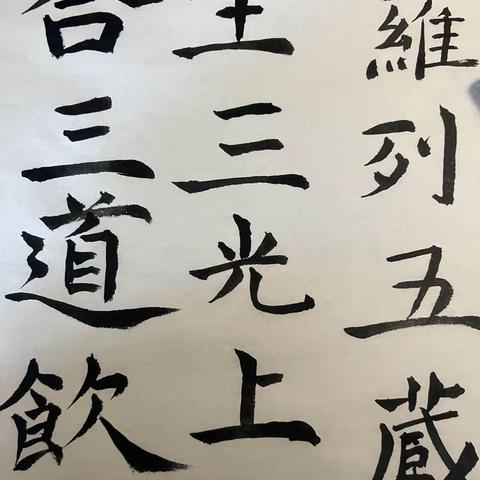 羅列五藏
生三光上
合三道飲